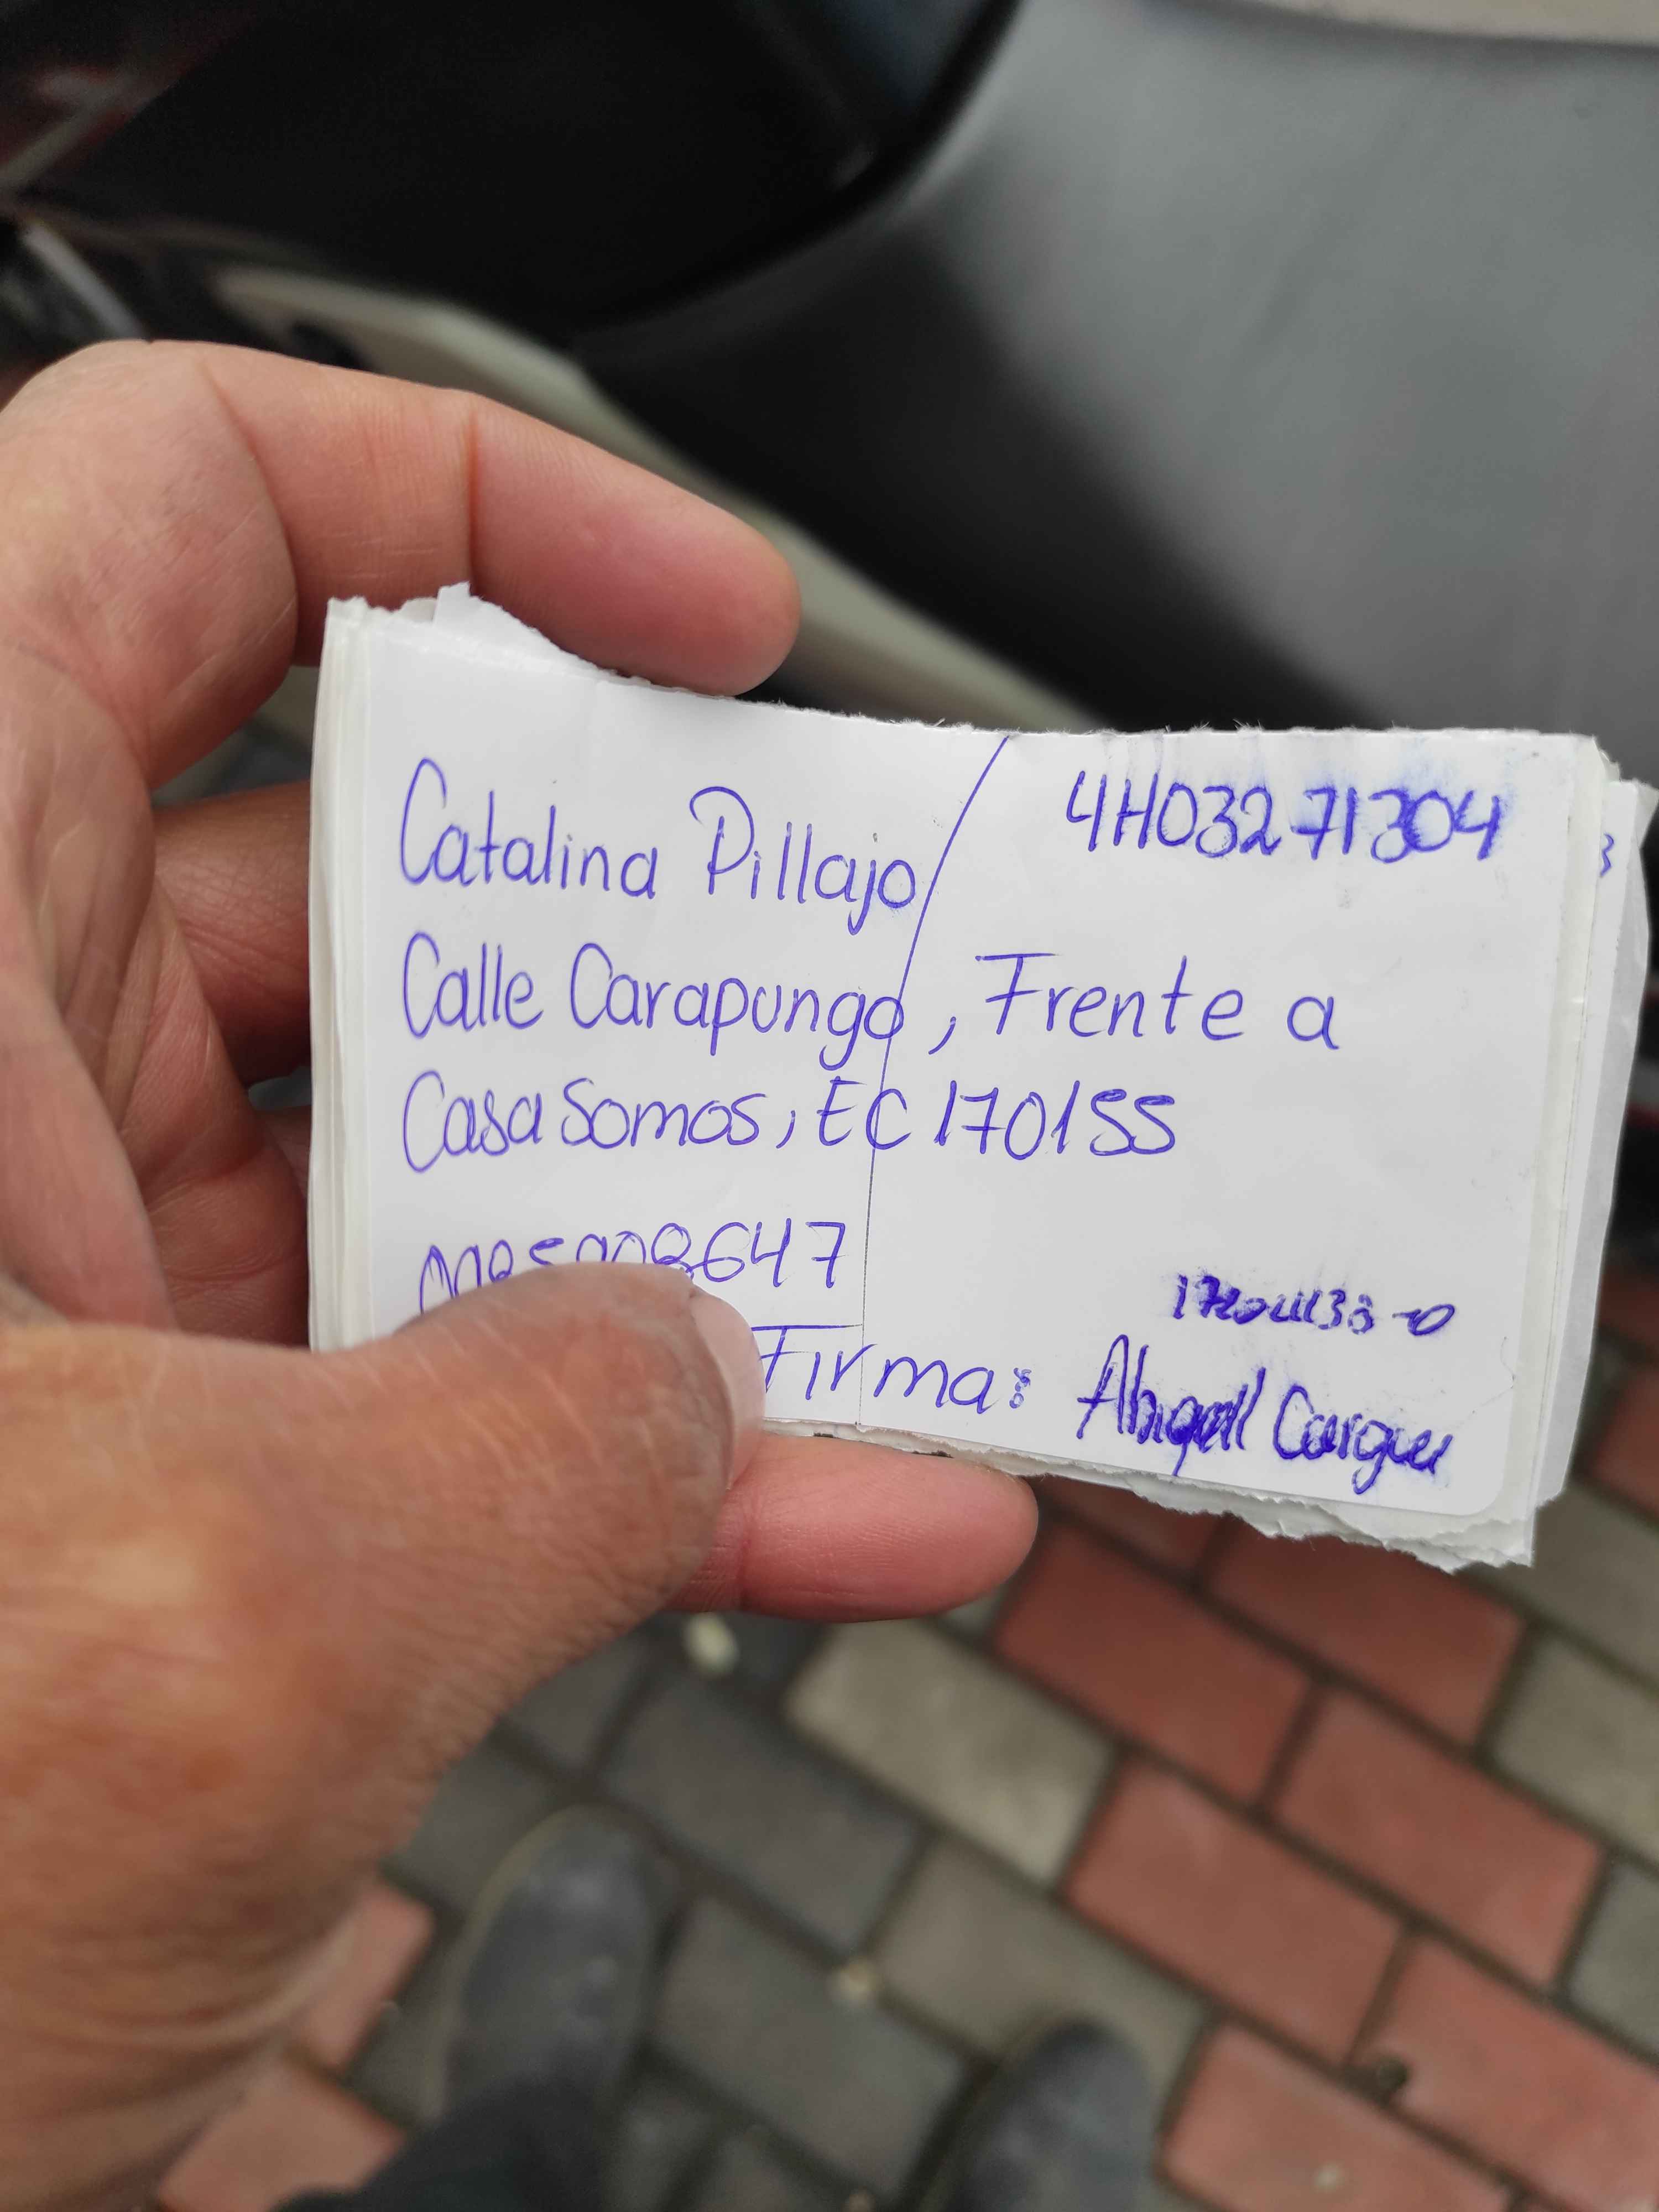 Catalina Pillajo
4H03271304
Calle Carapungo, Frente a
Casa Somos, EC170155
Firma: Abigail